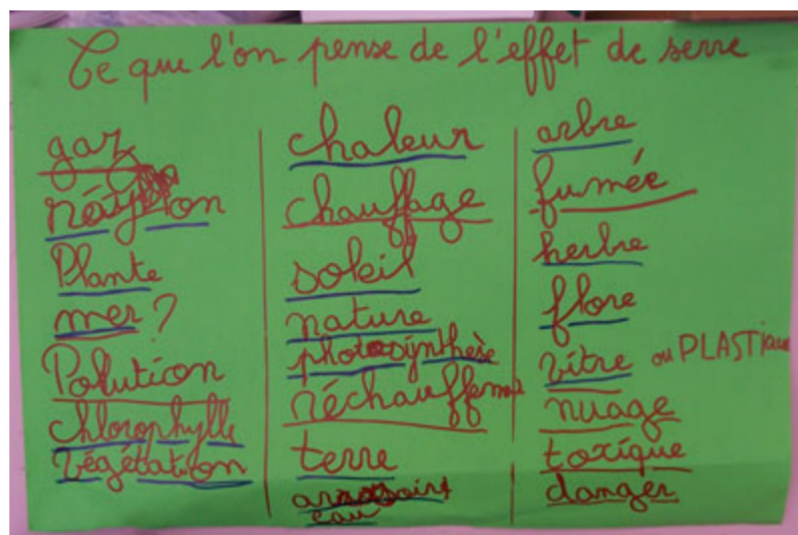 Ce que l'on pense de l'effet de serre
gaz
Plante
mer ?
Polution
chlorophylle
végétation
chaleur
chauffage
soleil
nature
photosynthèse
réchauffement
terre
eau
arbre
fumée
herbe
flore
vitre ou PLASTique
nuage
toxique
danger